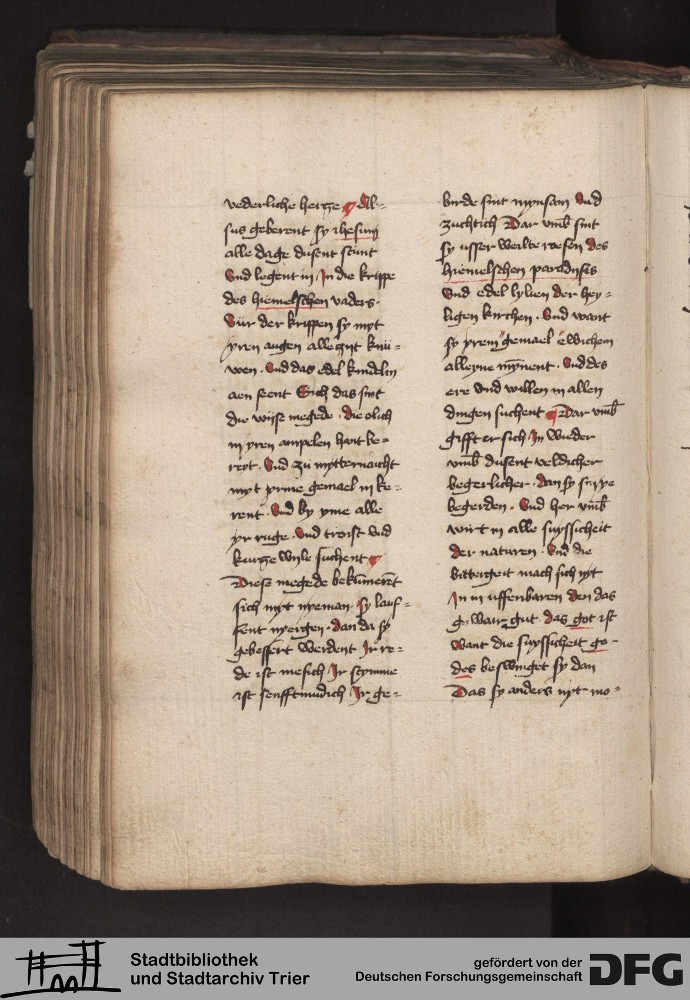 vederliche hertze Al-
sus geberent sy ihesum
alle dage dusent stunt
Vnd legent in In die krippe
des hiemelschen vaders.
Vür der krippen sy myt
yren augen alle zyt knü-
wen. Vnd das edel kindelin
aen seent Eich das sint
die wijse megede. die olich
in yren ampelen hant be-
reit. Vnd zü mytternaicht
myt yrme gemael in ke-
rent. Vnd by yme alle
yr ruge. Vnd troist Vnd
kurtze wyle suchent
Diess megede bekümerēt
sich myt nyeman. sy lauf-
fent nyergen. dan da sy
gebessert werdent Ir re-
de ist mesich Ir stymme
ist senfftmudich Ir ge-
birde sint mynsam Vnd
zuchtich Dar vmb sint
sy vsser welte rosen des
hiemelschen paradysis
Vnd edel lylien der hey-
ligen kirchen. Vnd want
sy yrem gemael ewichem
alleyne mynent. Vnd des
ere Vnd willen in allen
dingen suchent Dar vmb
gifft er sich In wieder
vmb dusent veldicher
begerlicher. dan sy syne
begerden. Vnd her vmb
wirt in alle suyssicheit
der naturen. Vnd die
bittergeit mach sich nyt
In in uffenbaren den das
g. wair gut. das got ist
want die suyssicheit go-
des beswinget sy dan
Das sy anders nyt mo-
Stadtbibliothek
und Stadtarchiv Trier
gefördert von der
Deutschen Forschungsgemeinschaft
DFG